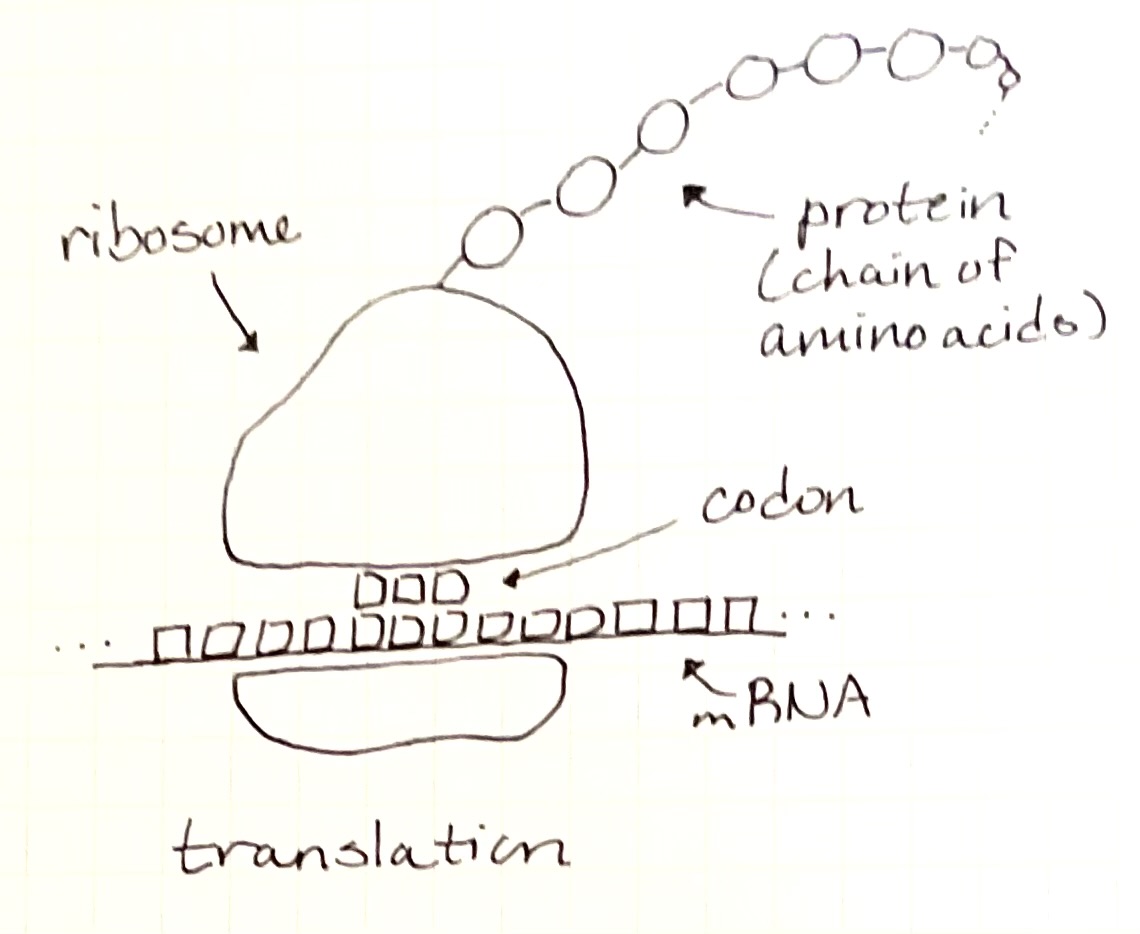 ribosome
protein
(chain of
amino acids)
codon
mRNA
translation